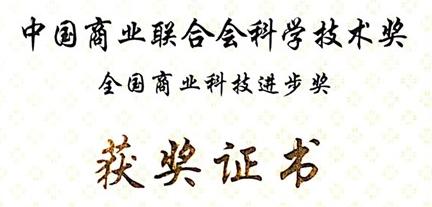 中国商业联合会科学技术奖
全国商业科技进步奖
获奖证书